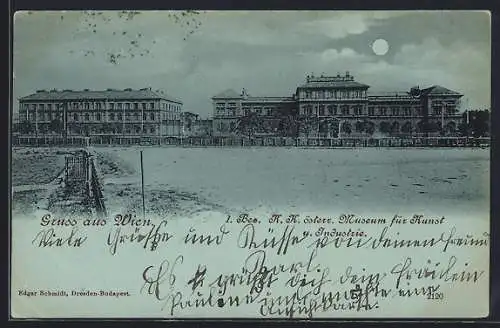 Gruss aus Wien
I. Bez. K. K. österr. Museum für Kunst
u. Industrie.
Viele Grüße und Küsse von deinem Freund
Karl.
Es grüßt dich dein Fräulein
Pauline und
Edgar Schmidt, Dresden-Budapest.
2120